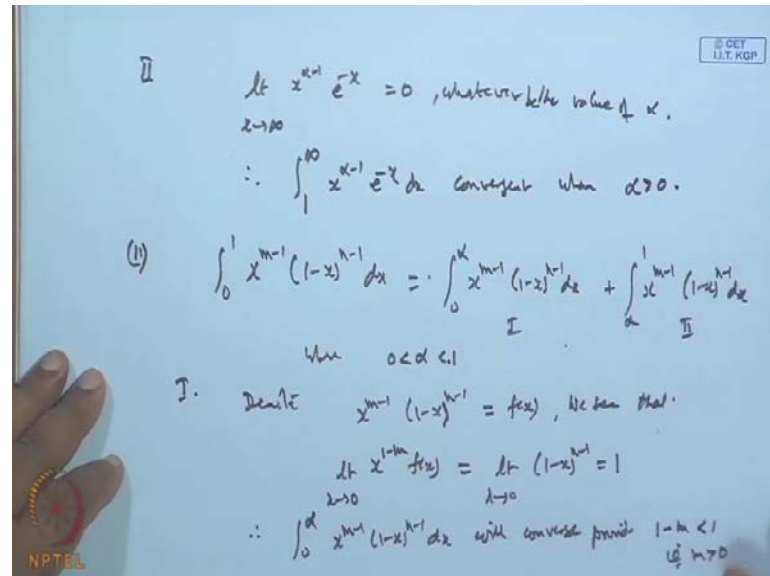 © CET
I.I.T. KGP
II lt x→∞ x^{α-1} e^{-x} = 0, whatever be the value of α.
∴ ∫_1^∞ x^{α-1} e^{-x} dx convergent when α>0.
(II) ∫_0^1 x^{m-1} (1-x)^{n-1} dx = ∫_0^α x^{m-1} (1-x)^{n-1} dx + ∫_α^1 x^{m-1} (1-x)^{n-1} dx
I II
where 0<α<1
I. Denote x^{m-1} (1-x)^{n-1} = f(x), we see that
lt x→0 x^{1-m} f(x) = lt x→0 (1-x)^{n-1} = 1
∴ ∫_0^α x^{m-1} (1-x)^{n-1} dx will converge provid 1-m<1
ie m>0
NPTEL